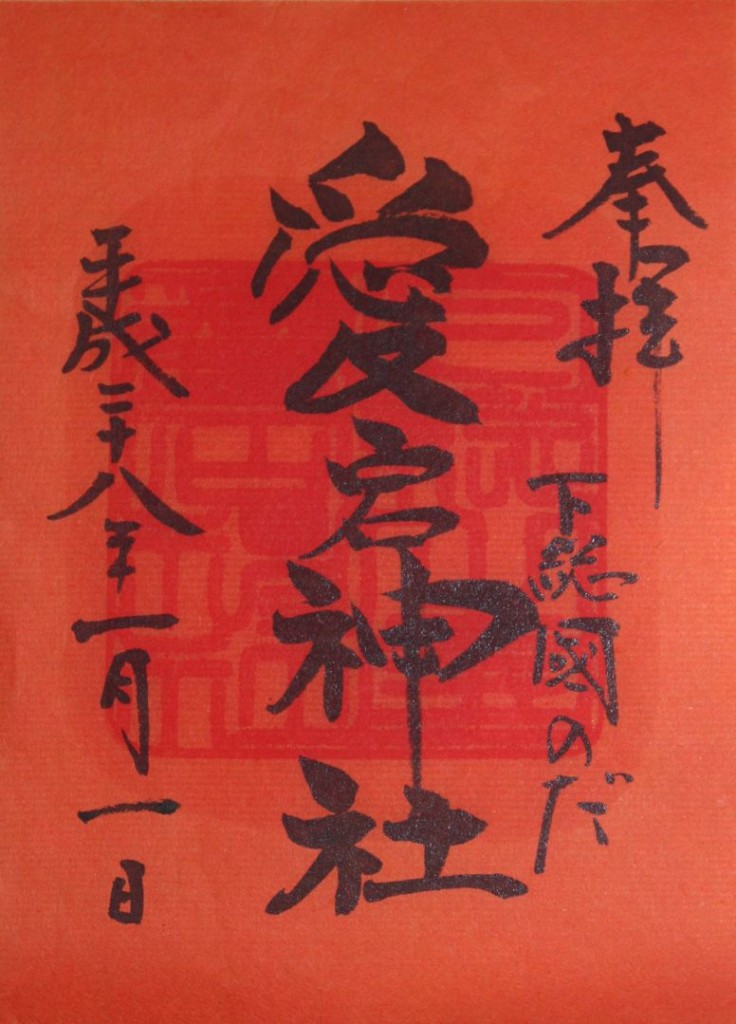 奉拝
下総國のだ
愛宕神社
平成二十八年一月一日